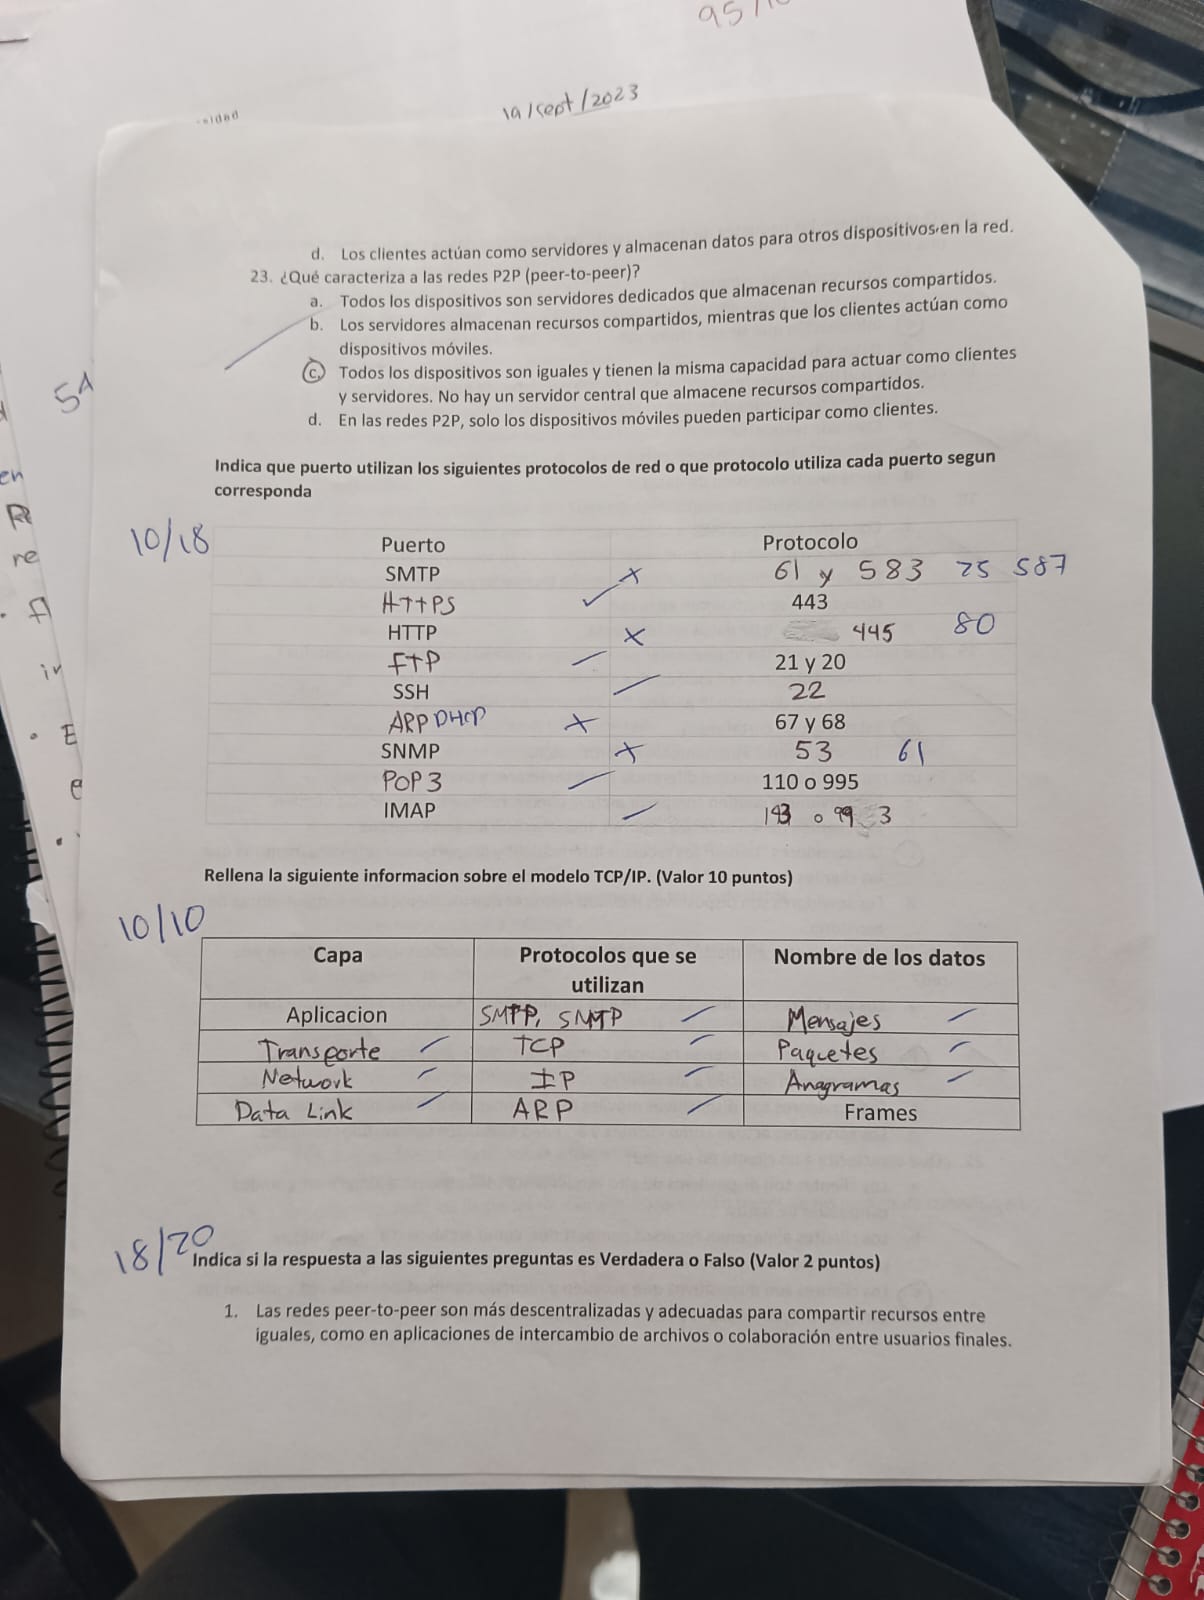 95/10
19/sept/2023
d. Los clientes actúan como servidores y almacenan datos para otros dispositivos en la red.
23. ¿Qué caracteriza a las redes P2P (peer-to-peer)?
a. Todos los dispositivos son servidores dedicados que almacenan recursos compartidos.
b. Los servidores almacenan recursos compartidos, mientras que los clientes actúan como
dispositivos móviles.
c. Todos los dispositivos son iguales y tienen la misma capacidad para actuar como clientes
y servidores. No hay un servidor central que almacene recursos compartidos.
d. En las redes P2P, solo los dispositivos móviles pueden participar como clientes.
Indica que puerto utilizan los siguientes protocolos de red o que protocolo utiliza cada puerto segun
corresponda
10/18
Puerto Protocolo
SMTP x 61 y 583 25 587
HTTPS ✓ 443
HTTP x 445 80
FTP 21 y 20
SSH 22
ARP DHCP x 67 y 68
SNMP x 53 61
POP3 110 o 995
IMAP 143 o 99 3
Rellena la siguiente informacion sobre el modelo TCP/IP. (Valor 10 puntos)
10/10
Capa Protocolos que se utilizan Nombre de los datos
Aplicacion SMPP, SNMTP Mensajes
Transporte TCP Paquetes
Network IP Anagramas
Data Link ARP Frames
18/20
Indica si la respuesta a las siguientes preguntas es Verdadera o Falso (Valor 2 puntos)
1. Las redes peer-to-peer son más descentralizadas y adecuadas para compartir recursos entre
iguales, como en aplicaciones de intercambio de archivos o colaboración entre usuarios finales.